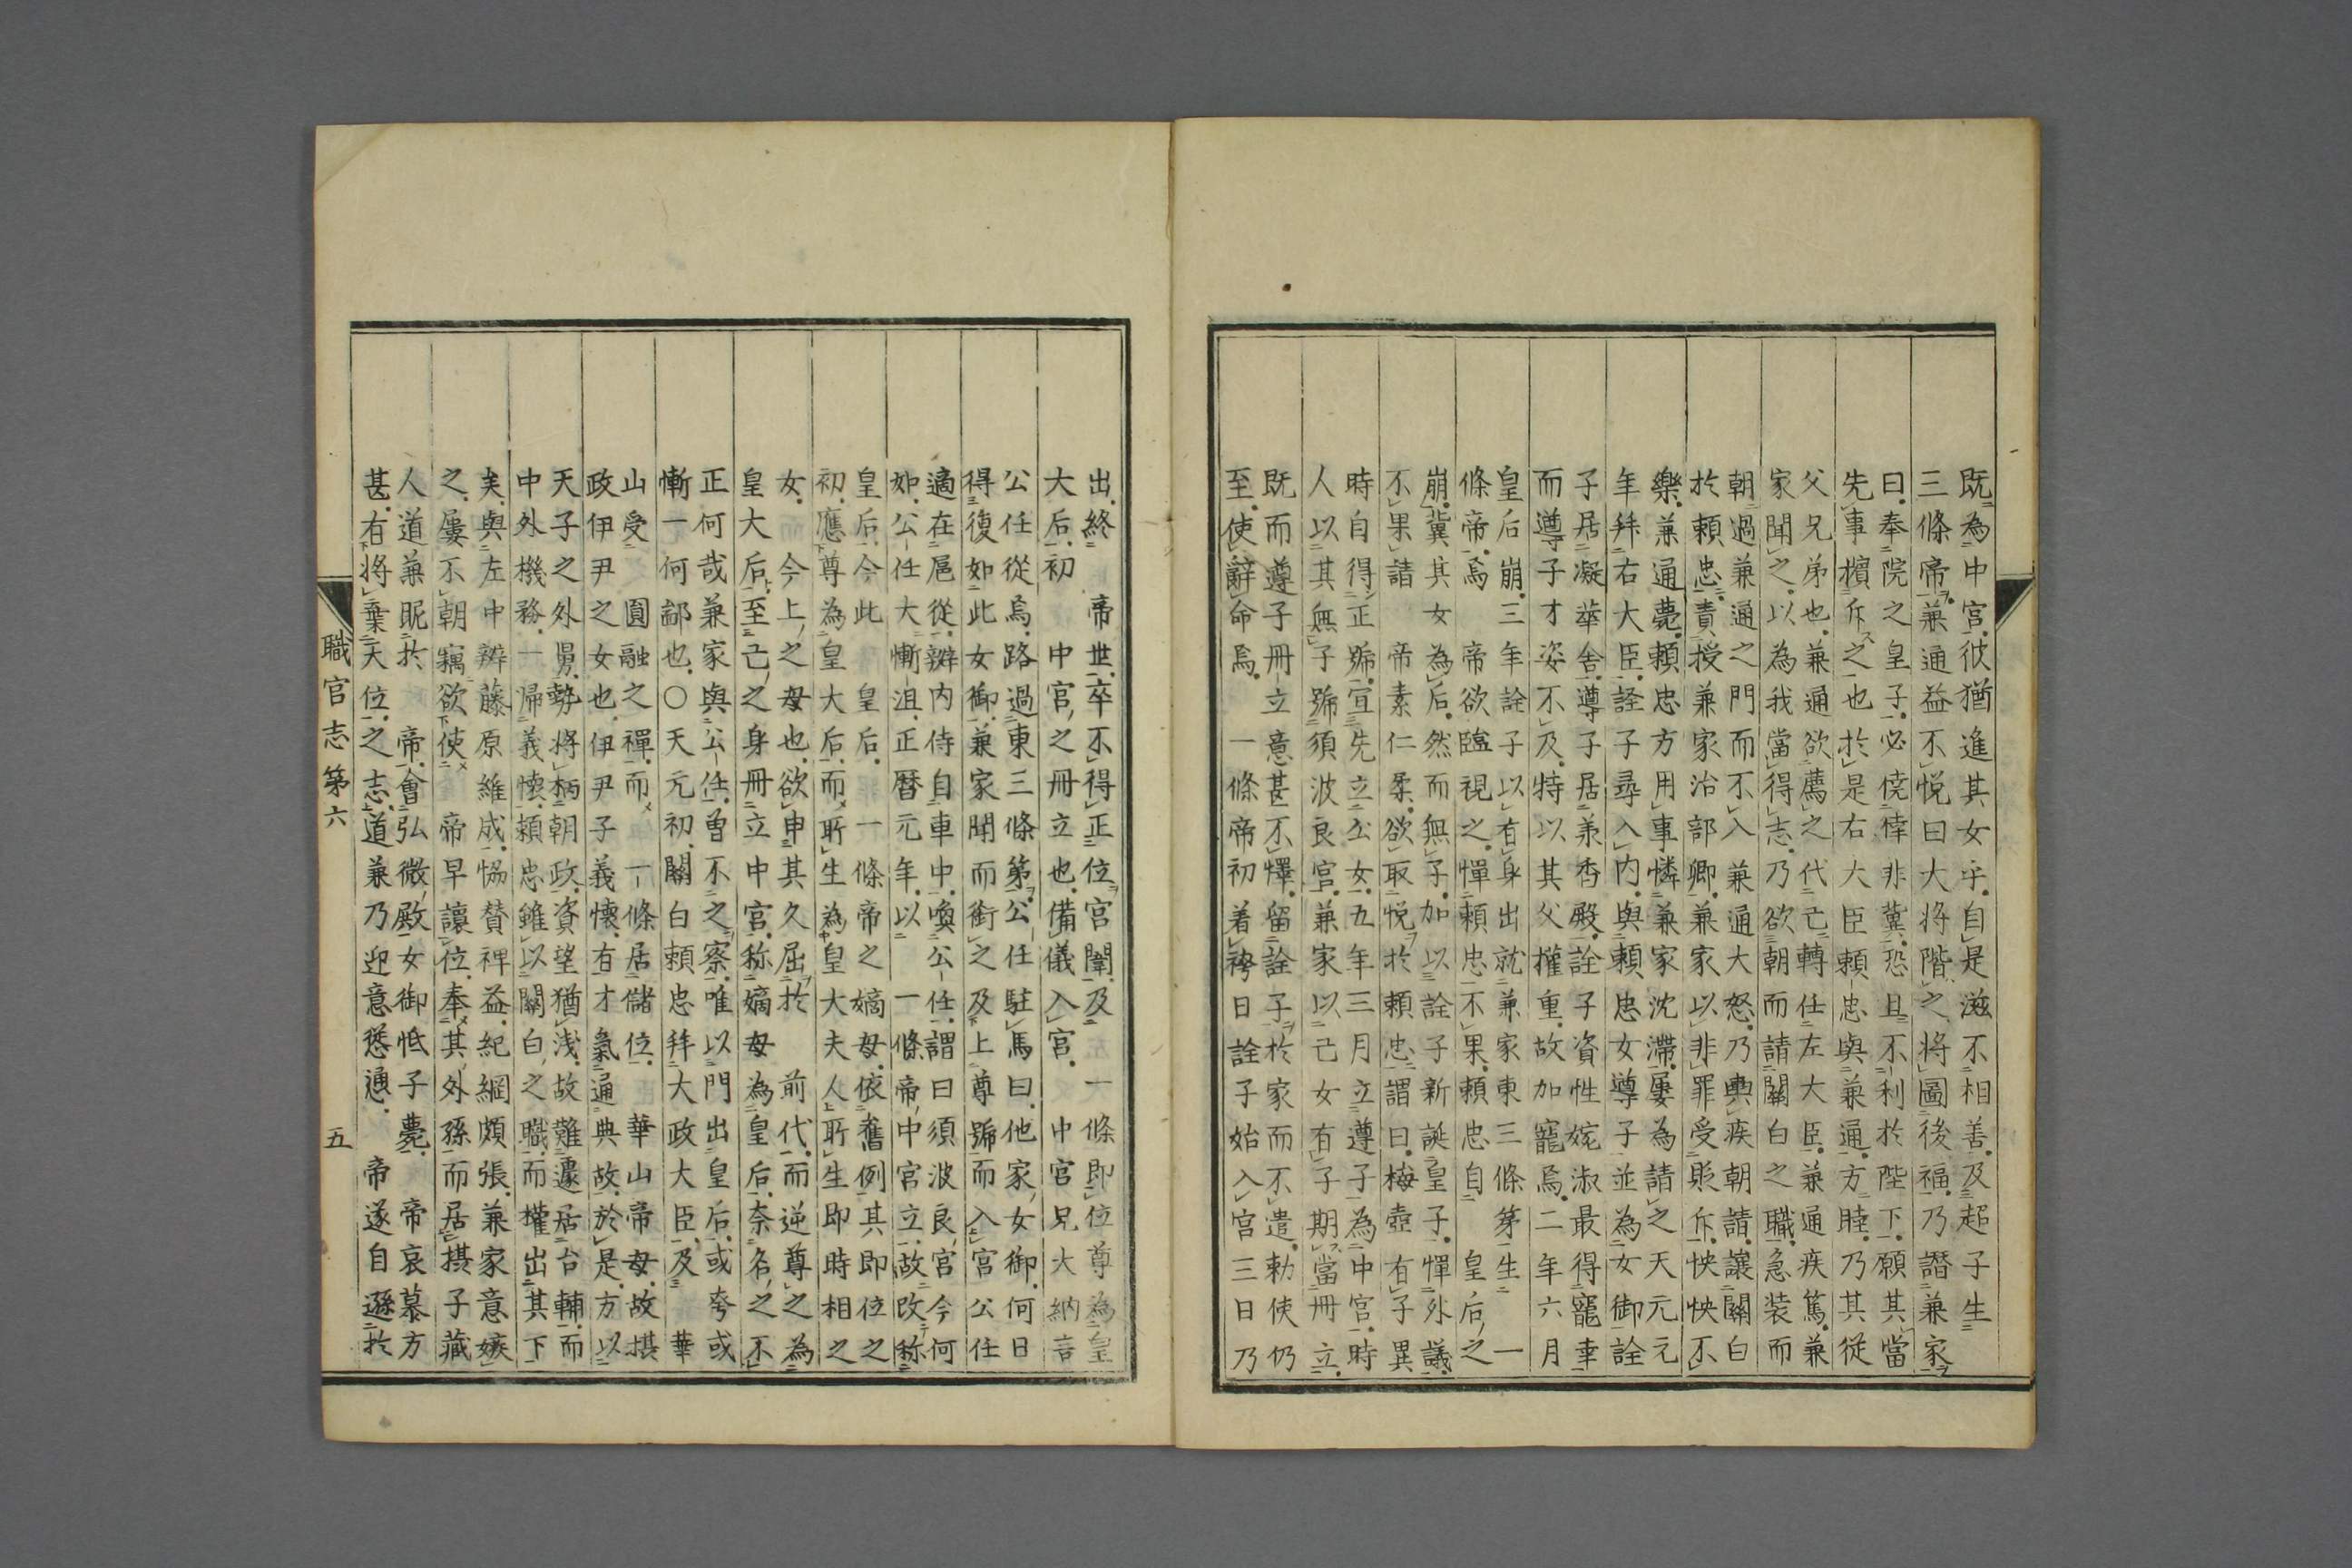 既為中宮彼猶進其女乎自是滋不相善及超子生
三條帝兼通益不悦曰大将階之将圖後福乃譖兼家
曰奉院之皇子必僥倖非冀恐且不利於陛下願其當
先事擯斥之也於是右大臣頼忠與兼通方睦乃其從
父兄弟也兼通欲薦之代己轉任左大臣兼通疾篤兼
家聞之以為我當得志乃欲朝而請關白之職急装而
朝過兼通之門而不入兼通大怒乃輿疾朝請讓關白
於頼忠責授兼家治部卿兼家以非罪受貶斥怏怏不
樂兼通薨頼忠方用事憐兼家沈滯屢為請之天元元
年拜右大臣詮子尋入内與頼忠女遵子並為女御詮
子居凝華舎遵子居兼香殿詮子資性婉淑最得寵幸
而遵子才姿不及特以其父權重故加寵焉二年六月
皇后崩三年詮子以有身出就兼家東三條第生一
條帝焉帝欲臨視之憚頼忠不果頼忠自皇后之
崩冀其女為后然而無子加以詮子新誕皇子憚外議
不果請帝素仁柔欲取悦於頼忠謂曰梅壺有子異
時自得正號宣先立公女五年三月立遵子為中宮時
人以其無子號須波良宮兼家以己女有子期當冊立
既而遵子冊立意甚不懌留詮子於家而不遣勅使仍
至使辭命焉一條帝初着袴日詮子始入宮三日乃
出終帝世卒不得正位宮闈及一條即位尊為皇
大后初中宮之冊立也備儀入宮中宮兄大納言
公任從焉路過東三條第公任駐馬曰他家女御何日
得復如此女御兼家聞而銜之及上尊號而入宮公任
適在扈從辨内侍自車中喚公任謂曰須波良宮今何
如公任大慚沮正暦元年以一條帝中宮立故改称
皇后今此皇后一條帝之嫡母依舊例其即位之
初應尊為皇大后而所生為皇大夫人所生即時相之
女而今上之母也欲申其久屈於前代而逆尊之為
皇大后至己之身冊立中宮称嫡母為皇后奈名之不
正何哉兼家與公任曽不之察唯以門出皇后或夸或
慚一何鄙也○天元初關白頼忠拜大政大臣及華
山受圓融之禪而一條居儲位華山帝母故摂
政伊尹之女也伊尹子義懷有才氣通典故於是方以
天子之外舅勢将柄朝政資望猶浅故難遽居台輔而
中外機務一歸義懷頼忠雖以關白之職而權出其下
矣與左中辨藤原維成恊賛裨益紀綱頗張兼家意嫉
之屢不朝竊欲使帝早讓位奉其外孫而居摂子藏
人道兼昵於帝會弘微殿女御怟子薨帝哀慕方
甚有将棄天位之志道兼乃迎意慫慂帝遂自遜於
職官志第六
五